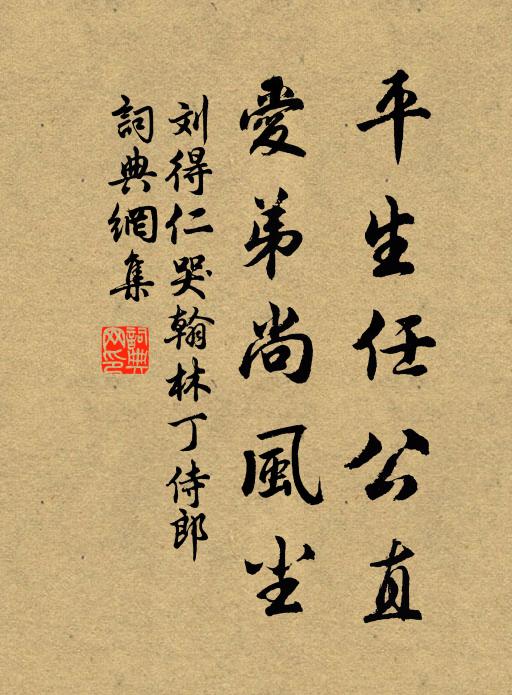 平生任公直
愛弟尚風尘
刘得仁哭翰林丁侍郎
詞典網集
詞典
网印